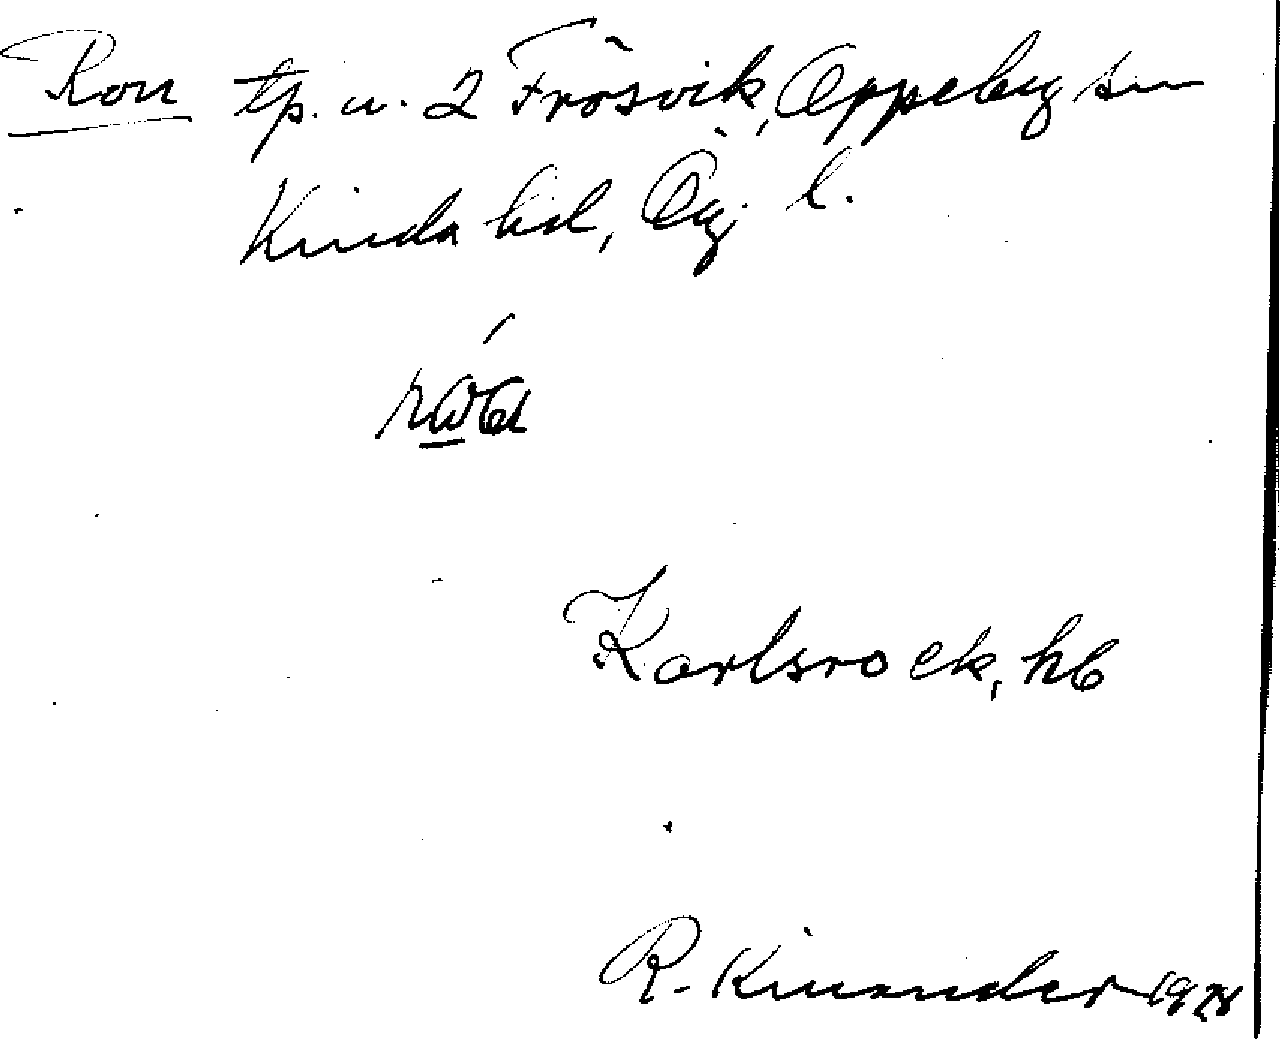 Ron tp. u. 2 Frösvik, Oppeby sn
Kinda hd, Ög. l.
Karlsro ek, hb
R. Kinander 1928